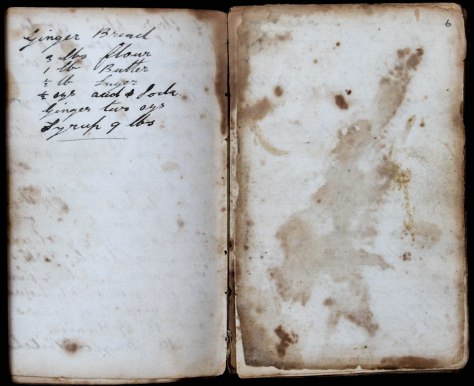 Ginger Bread
3 lbs flour
1 lb Butter
½ lb Suger
½ ozs acid & Soda
Ginger two ozs
Syrup 9 lbs
6